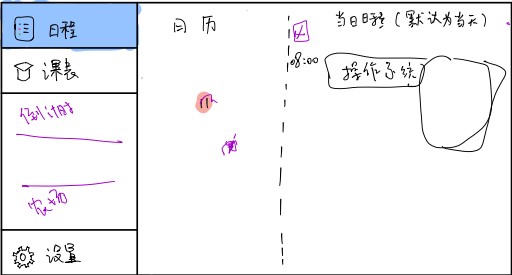 日程
课表
倒计时
农场
设置
日历
当日日程（默认为当天）
08:00
操作系统